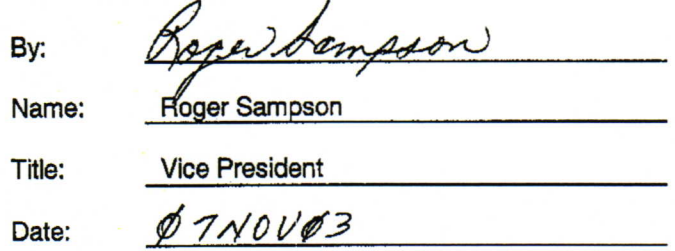 By: Roger Sampson
Name: Roger Sampson
Title: Vice President
Date: 07NOV03